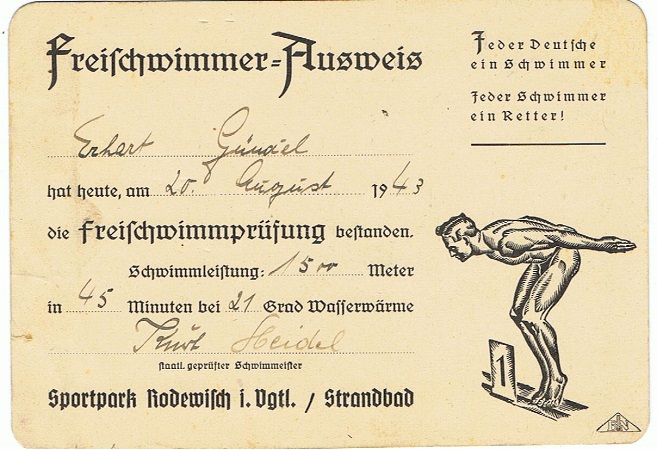 Freischwimmer-Ausweis
Jeder Deutsche
ein Schwimmer
Jeder Schwimmer
ein Retter!
Erhart Gündel
hat heute, am 20. August 1943
die Freischwimmprüfung bestanden.
Schwimmleistung: 1500 Meter
in 45 Minuten bei 21 Grad Wasserwärme
Kurt Heidel
staatl. geprüfter Schwimmeister
Sportpark Rodewisch i. Vgtl. / Strandbad
1